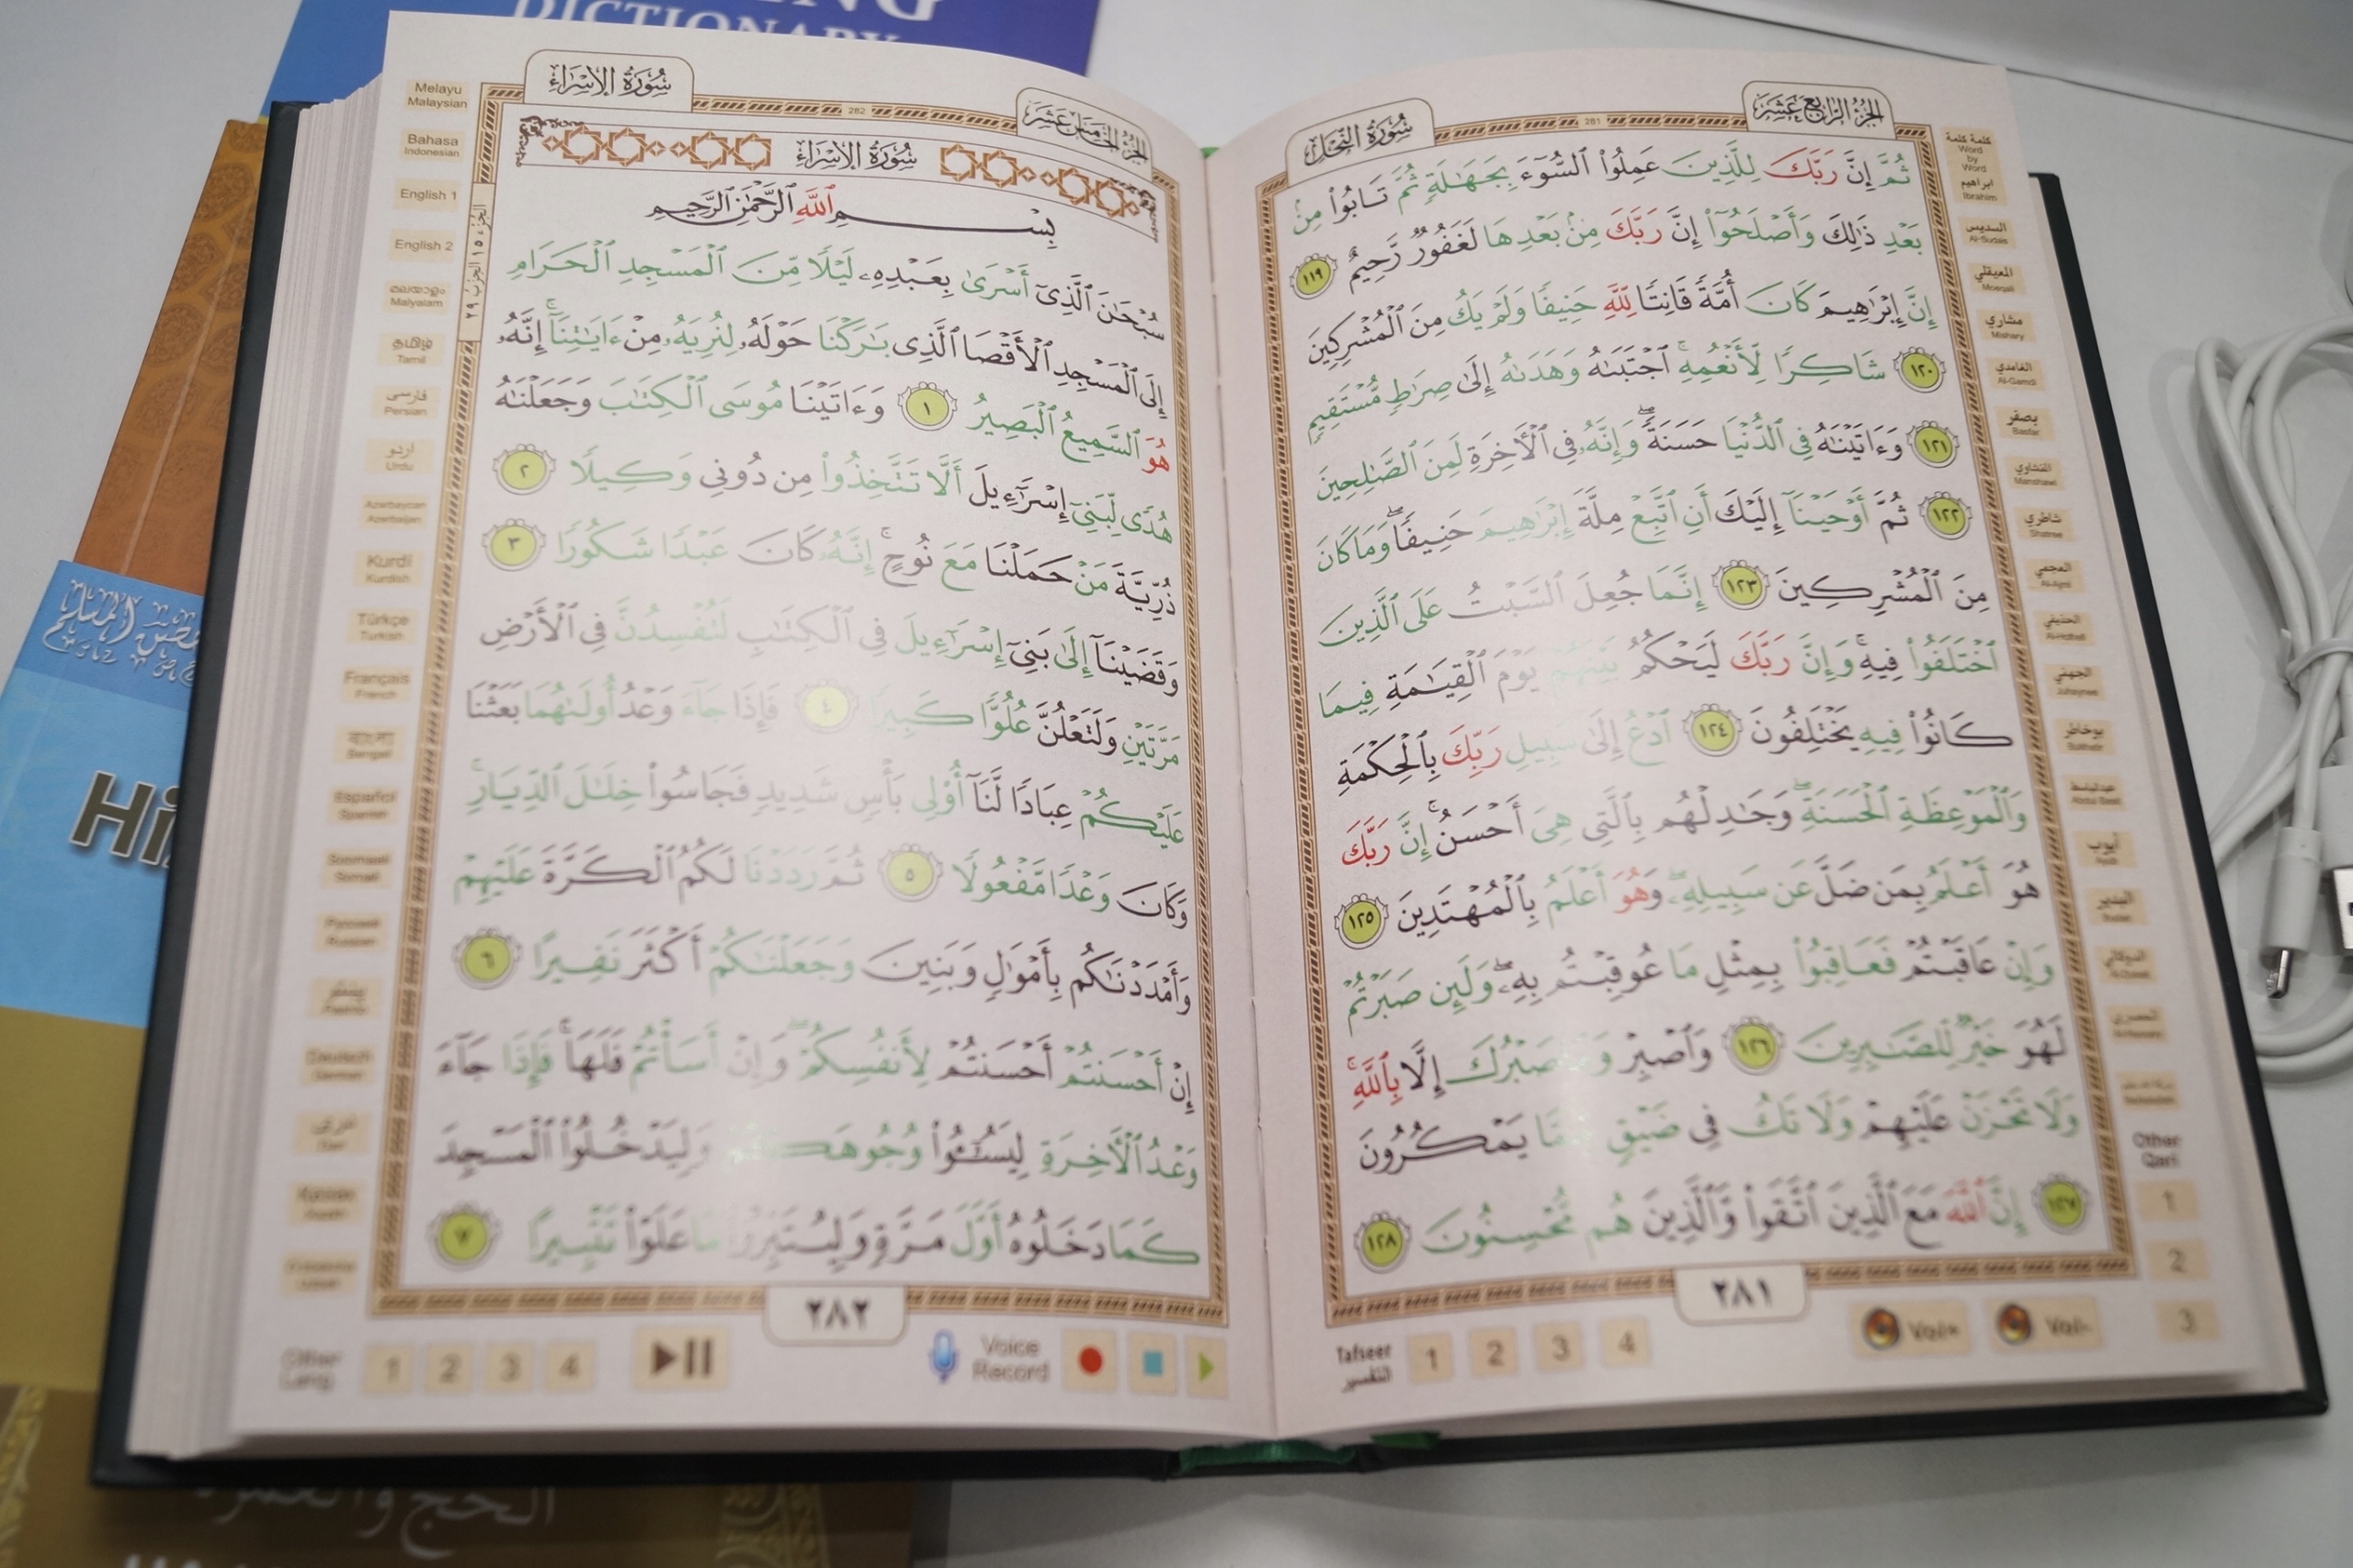 DICTIONARY
الجزء الرابع عشر
281
سورة النحل
ثُمَّ إِنَّ رَبَّكَ لِلَّذِينَ عَمِلُوا۟ ٱلسُّوٓءَ بِجَهَـٰلَةٍ ثُمَّ تَابُوا۟ مِنۢ
بَعْدِ ذَٰلِكَ وَأَصْلَحُوٓا۟ إِنَّ رَبَّكَ مِنۢ بَعْدِهَا لَغَفُورٌ رَّحِيمٌ ١١٩
إِنَّ إِبْرَٰهِيمَ كَانَ أُمَّةً قَانِتًا لِّلَّهِ حَنِيفًا وَلَمْ يَكُ مِنَ ٱلْمُشْرِكِينَ
١٢٠ شَاكِرًا لِّأَنْعُمِهِ ۚ ٱجْتَبَىٰهُ وَهَدَىٰهُ إِلَىٰ صِرَٰطٍ مُّسْتَقِيمٍ
١٢١ وَءَاتَيْنَـٰهُ فِى ٱلدُّنْيَا حَسَنَةً ۖ وَإِنَّهُۥ فِى ٱلْـَٔاخِرَةِ لَمِنَ ٱلصَّـٰلِحِينَ
١٢٢ ثُمَّ أَوْحَيْنَآ إِلَيْكَ أَنِ ٱتَّبِعْ مِلَّةَ إِبْرَٰهِيمَ حَنِيفًا ۖ وَمَا كَانَ
مِنَ ٱلْمُشْرِكِينَ ١٢٣ إِنَّمَا جُعِلَ ٱلسَّبْتُ عَلَى ٱلَّذِينَ
ٱخْتَلَفُوا۟ فِيهِ ۚ وَإِنَّ رَبَّكَ لَيَحْكُمُ بَيْنَهُمْ يَوْمَ ٱلْقِيَـٰمَةِ فِيمَا
كَانُوا۟ فِيهِ يَخْتَلِفُونَ ١٢٤ ٱدْعُ إِلَىٰ سَبِيلِ رَبِّكَ بِٱلْحِكْمَةِ
وَٱلْمَوْعِظَةِ ٱلْحَسَنَةِ ۖ وَجَـٰدِلْهُم بِٱلَّتِى هِىَ أَحْسَنُ ۚ إِنَّ رَبَّكَ
هُوَ أَعْلَمُ بِمَن ضَلَّ عَن سَبِيلِهِۦ ۖ وَهُوَ أَعْلَمُ بِٱلْمُهْتَدِينَ ١٢٥
وَإِنْ عَاقَبْتُمْ فَعَاقِبُوا۟ بِمِثْلِ مَا عُوقِبْتُم بِهِۦ ۖ وَلَئِن صَبَرْتُمْ
لَهُوَ خَيْرٌ لِّلصَّـٰبِرِينَ ١٢٦ وَٱصْبِرْ وَمَا صَبْرُكَ إِلَّا بِٱللَّهِ ۚ
وَلَا تَحْزَنْ عَلَيْهِمْ وَلَا تَكُ فِى ضَيْقٍ مِّمَّا يَمْكُرُونَ
١٢٧ إِنَّ ٱللَّهَ مَعَ ٱلَّذِينَ ٱتَّقَوا۟ وَّٱلَّذِينَ هُم مُّحْسِنُونَ ١٢٨
٢٨١
كلمة كلمة
Word
by
Word
ابراهيم
Ibrahim
السديس
Al-Sudais
المعيقلي
Moeqali
مشاري
Mishary
الغامدي
Al-Gamdi
بصفر
Basfar
المنشاوي
Manshawi
شاطري
Shatree
العجمي
Al-Ajmi
الحذيفي
الجهني
Juhaynee
بوخاطر
عبدالباسط
Abdul Basit
أيوب
Other
Qari
1
2
3
Tafseer
التفسير
1
2
3
4
Vol+
Vol-
الجزء الخامس عشر
282
سورة الإسراء
سورة الإسراء
بِسْمِ ٱللَّهِ ٱلرَّحْمَـٰنِ ٱلرَّحِيمِ
سُبْحَـٰنَ ٱلَّذِىٓ أَسْرَىٰ بِعَبْدِهِۦ لَيْلًا مِّنَ ٱلْمَسْجِدِ ٱلْحَرَامِ
إِلَى ٱلْمَسْجِدِ ٱلْأَقْصَا ٱلَّذِى بَـٰرَكْنَا حَوْلَهُۥ لِنُرِيَهُۥ مِنْ ءَايَـٰتِنَآ ۚ إِنَّهُۥ
هُوَ ٱلسَّمِيعُ ٱلْبَصِيرُ ١ وَءَاتَيْنَا مُوسَى ٱلْكِتَـٰبَ وَجَعَلْنَـٰهُ
هُدًى لِّبَنِىٓ إِسْرَٰٓءِيلَ أَلَّا تَتَّخِذُوا۟ مِن دُونِى وَكِيلًا ٢
ذُرِّيَّةَ مَنْ حَمَلْنَا مَعَ نُوحٍ ۚ إِنَّهُۥ كَانَ عَبْدًا شَكُورًا ٣
وَقَضَيْنَآ إِلَىٰ بَنِىٓ إِسْرَٰٓءِيلَ فِى ٱلْكِتَـٰبِ لَتُفْسِدُنَّ فِى ٱلْأَرْضِ
مَرَّتَيْنِ وَلَتَعْلُنَّ عُلُوًّا كَبِيرًا ٤ فَإِذَا جَآءَ وَعْدُ أُولَىٰهُمَا بَعَثْنَا
عَلَيْكُمْ عِبَادًا لَّنَآ أُو۟لِى بَأْسٍ شَدِيدٍ فَجَاسُوا۟ خِلَـٰلَ ٱلدِّيَارِ ۚ
وَكَانَ وَعْدًا مَّفْعُولًا ٥ ثُمَّ رَدَدْنَا لَكُمُ ٱلْكَرَّةَ عَلَيْهِمْ
وَأَمْدَدْنَـٰكُم بِأَمْوَٰلٍ وَبَنِينَ وَجَعَلْنَـٰكُمْ أَكْثَرَ نَفِيرًا ٦
إِنْ أَحْسَنتُمْ أَحْسَنتُمْ لِأَنفُسِكُمْ ۖ وَإِنْ أَسَأْتُمْ فَلَهَا ۚ فَإِذَا جَآءَ
وَعْدُ ٱلْـَٔاخِرَةِ لِيَسُـۥٓـُٔوا۟ وُجُوهَكُمْ وَلِيَدْخُلُوا۟ ٱلْمَسْجِدَ
كَمَا دَخَلُوهُ أَوَّلَ مَرَّةٍ وَلِيُتَبِّرُوا۟ مَا عَلَوْا۟ تَتْبِيرًا ٧
٢٨٢
الجزء ١٥ الحزب ٢٩
Melayu
Malaysian
Bahasa
Indonesian
English 1
English 2
മലയാളം
Malyalam
தமிழ்
Tamil
فارسی
Persian
اردو
Urdu
Azerbaycan
Azerbaijan
Kurdi
Kurdish
Türkçe
Turkish
Français
French
বাংলা
Bengali
Español
Spanish
Soomaali
Somali
Русский
Russian
پښتو
Deutsch
German
Other
Lang
1
2
3
4
Voice
Record
حصن المسلم
الحج والعمرة